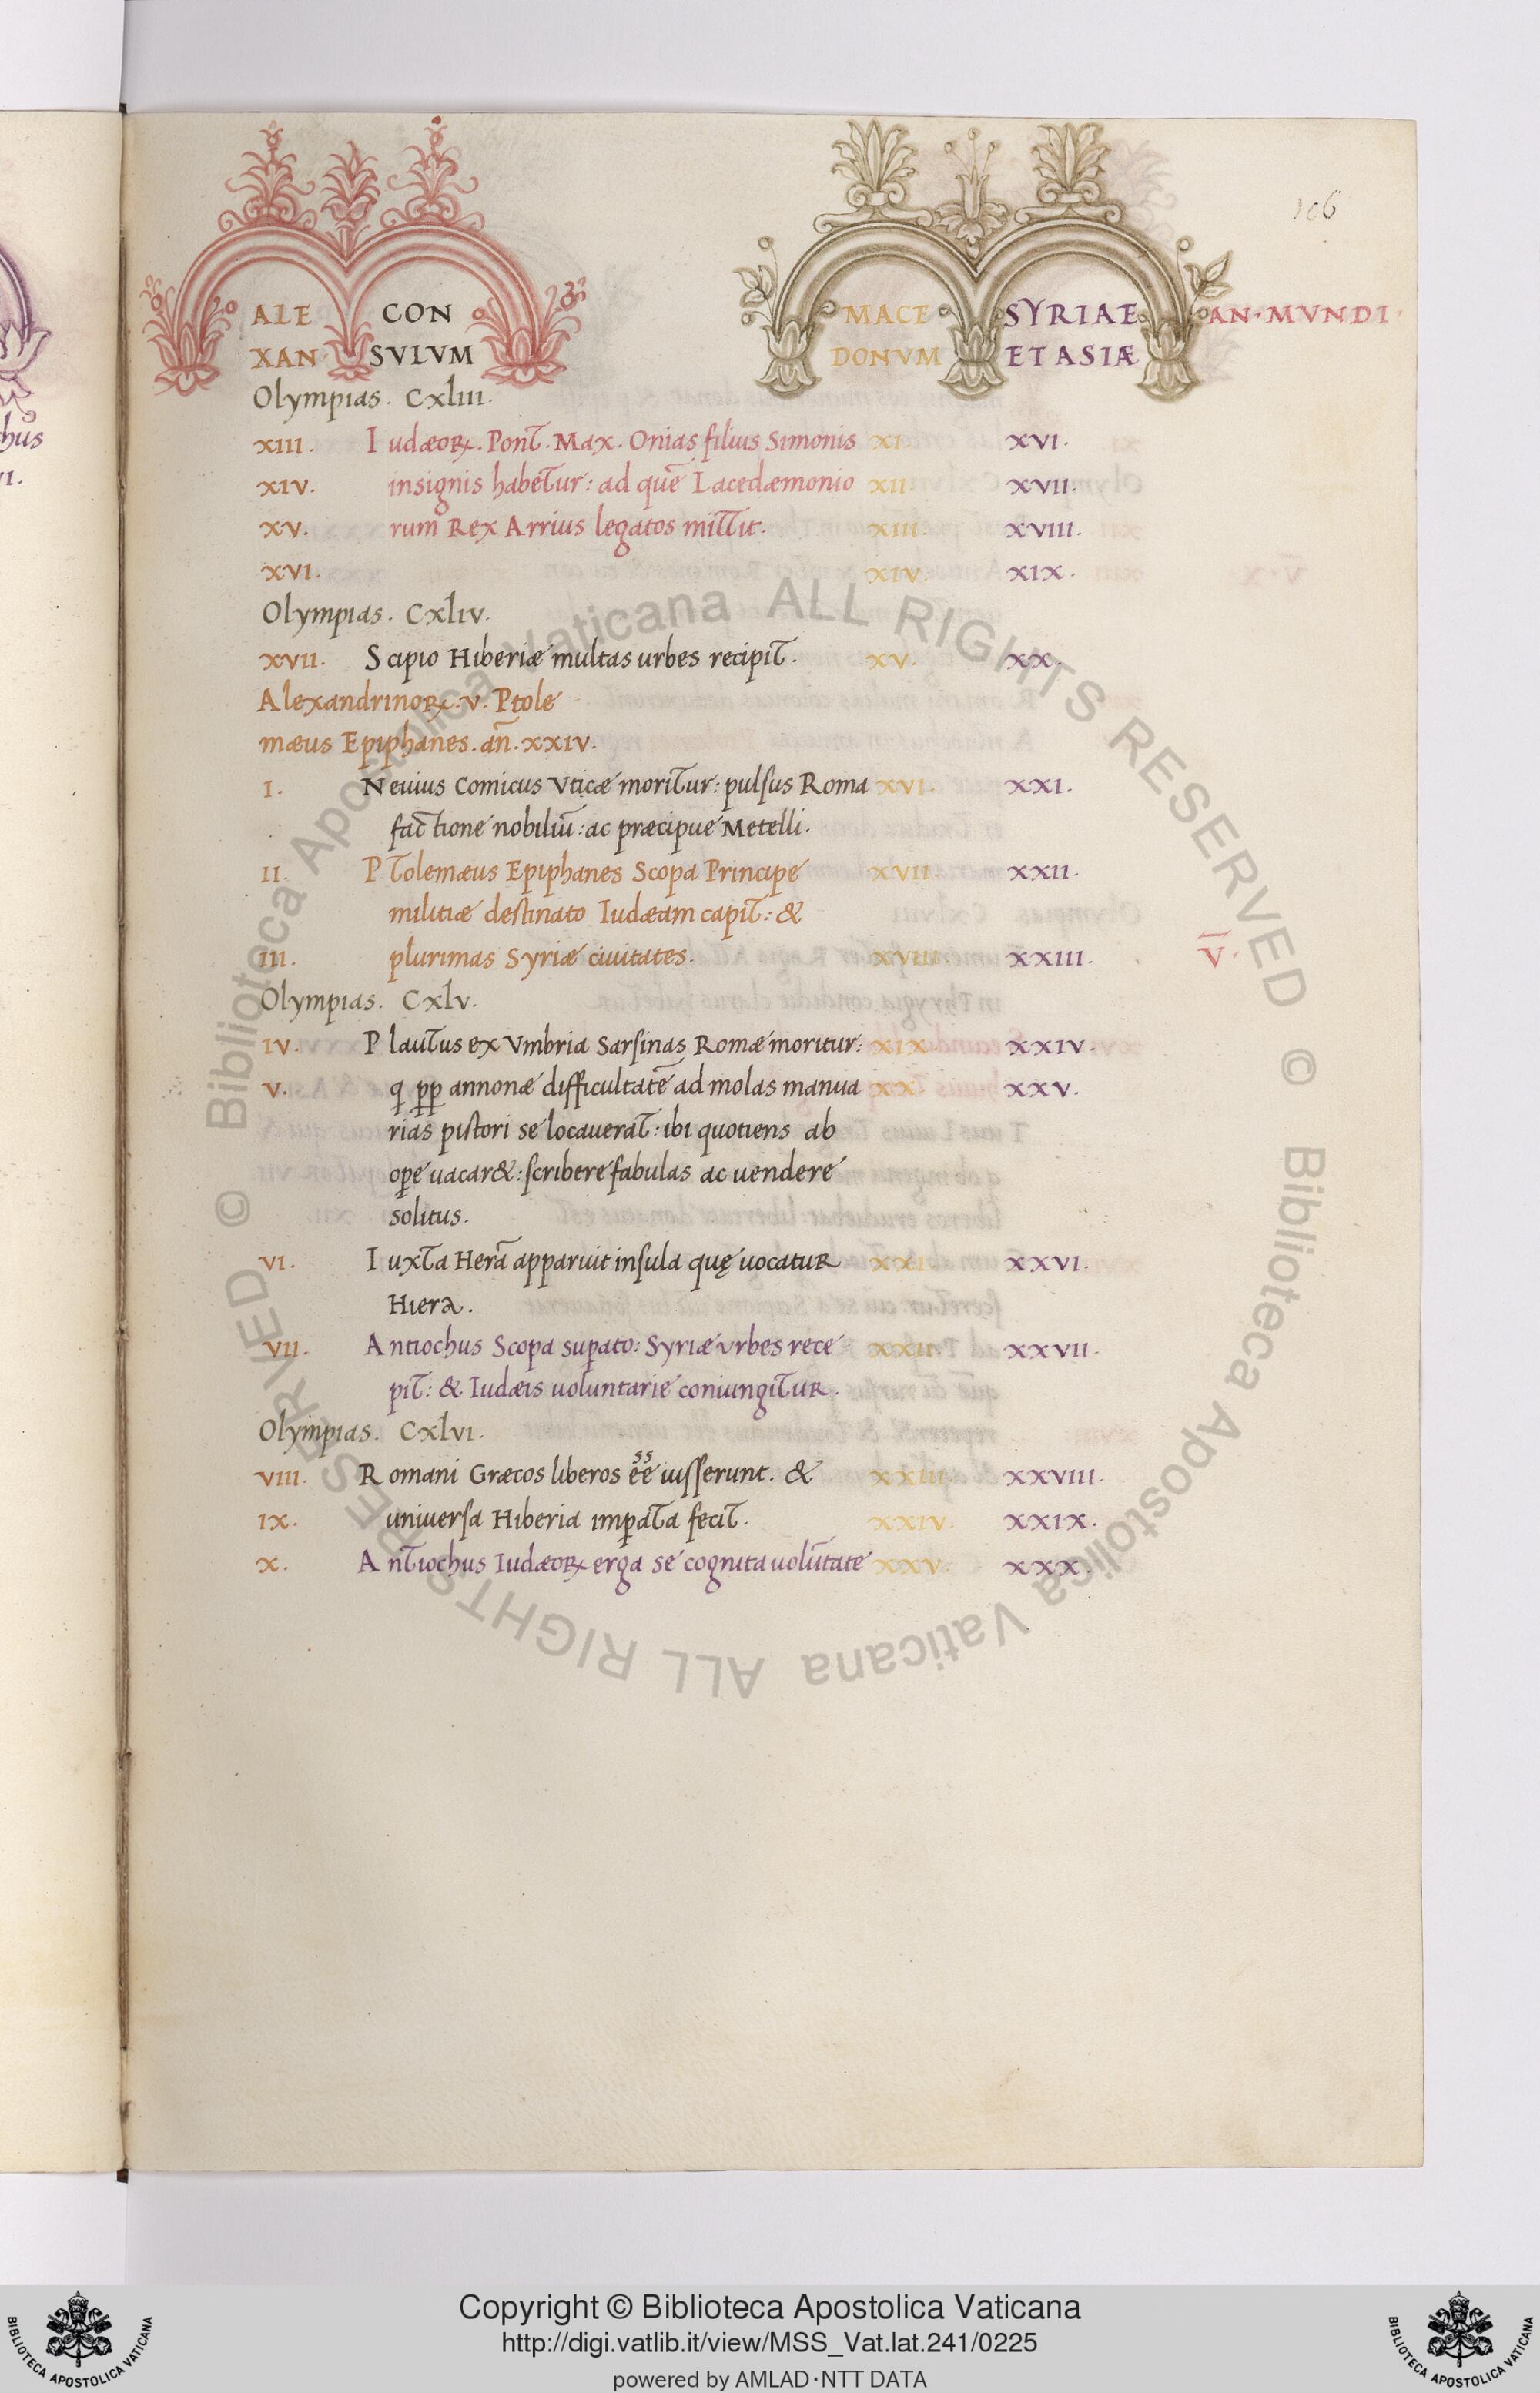 106
ALE CON MACE SYRIAE AN·MVNDI·
XAN SVLVM DONVM ET ASIÆ
Olympias. Cxlııı.
XIII. Iudæoꝝ. Ponť. Max. Onias filius Simonis XI. XVI.
XIV. insignis habetur: ad quē Lacedæmonio XII. XVII.
XV. rum Rex Arrius legatos mittit. XIII. XVIII.
XVI. XIV. XIX.
Olympias. Cxlıv.
XVII. Scipio Hiberiæ multas urbes recipit. XV. XX.
Alexandrinoꝝ. v. Ptole
mæus Epiphanes. añ. XXIV.
I. Neuius Comicus Vticæ moritur: pulsus Roma XVI. XXI.
factione nobiliū: ac præcipue Metelli.
II. Ptolemæus Epiphanes Scopa Principe XVII. XXII.
militiæ destinato Iudæam capit: &
III. plurimas Syriæ ciuitates. XVIII. XXIII. V̅.
Olympias. Cxlv.
IV. Plautus ex Vmbria Sarsinas Romæ moritur: XIX. XXIV.
V. q ꝓp annonæ difficultatē ad molas manua XX. XXV.
rias pistori se locauerat: ibi quotiens ab
oꝑe uacar&: scribere fabulas ac uendere
solitus.
VI. Iuxta Herā apparuit insula quę uocatur XXI. XXVI.
Hiera.
VII. Antiochus Scopa suꝑato: Syriæ vrbes rece XXII. XXVII.
pit: & Iudæis uoluntarie coniungitur.
Olympias. Cxlvı.
VIII. Romani Græcos liberos ēē iusserunt. & XXIII. XXVIII.
ss
IX. uniuersa Hiberia imꝑata fecit. XXIV. XXIX.
X. Antiochus Iudæoꝝ erga se cognita uolūtate XXV. XXX.
hus
VI.
© Biblioteca Apostolica Vaticana ALL RIGHTS RESERVED © Biblioteca Apostolica Vaticana ALL RIGHTS RESERVED
Copyright © Biblioteca Apostolica Vaticana
http://digi.vatlib.it/view/MSS_Vat.lat.241/0225
powered by AMLAD·NTT DATA
BIBLIOTECA APOSTOLICA VATICANA
BIBLIOTECA APOSTOLICA VATICANA